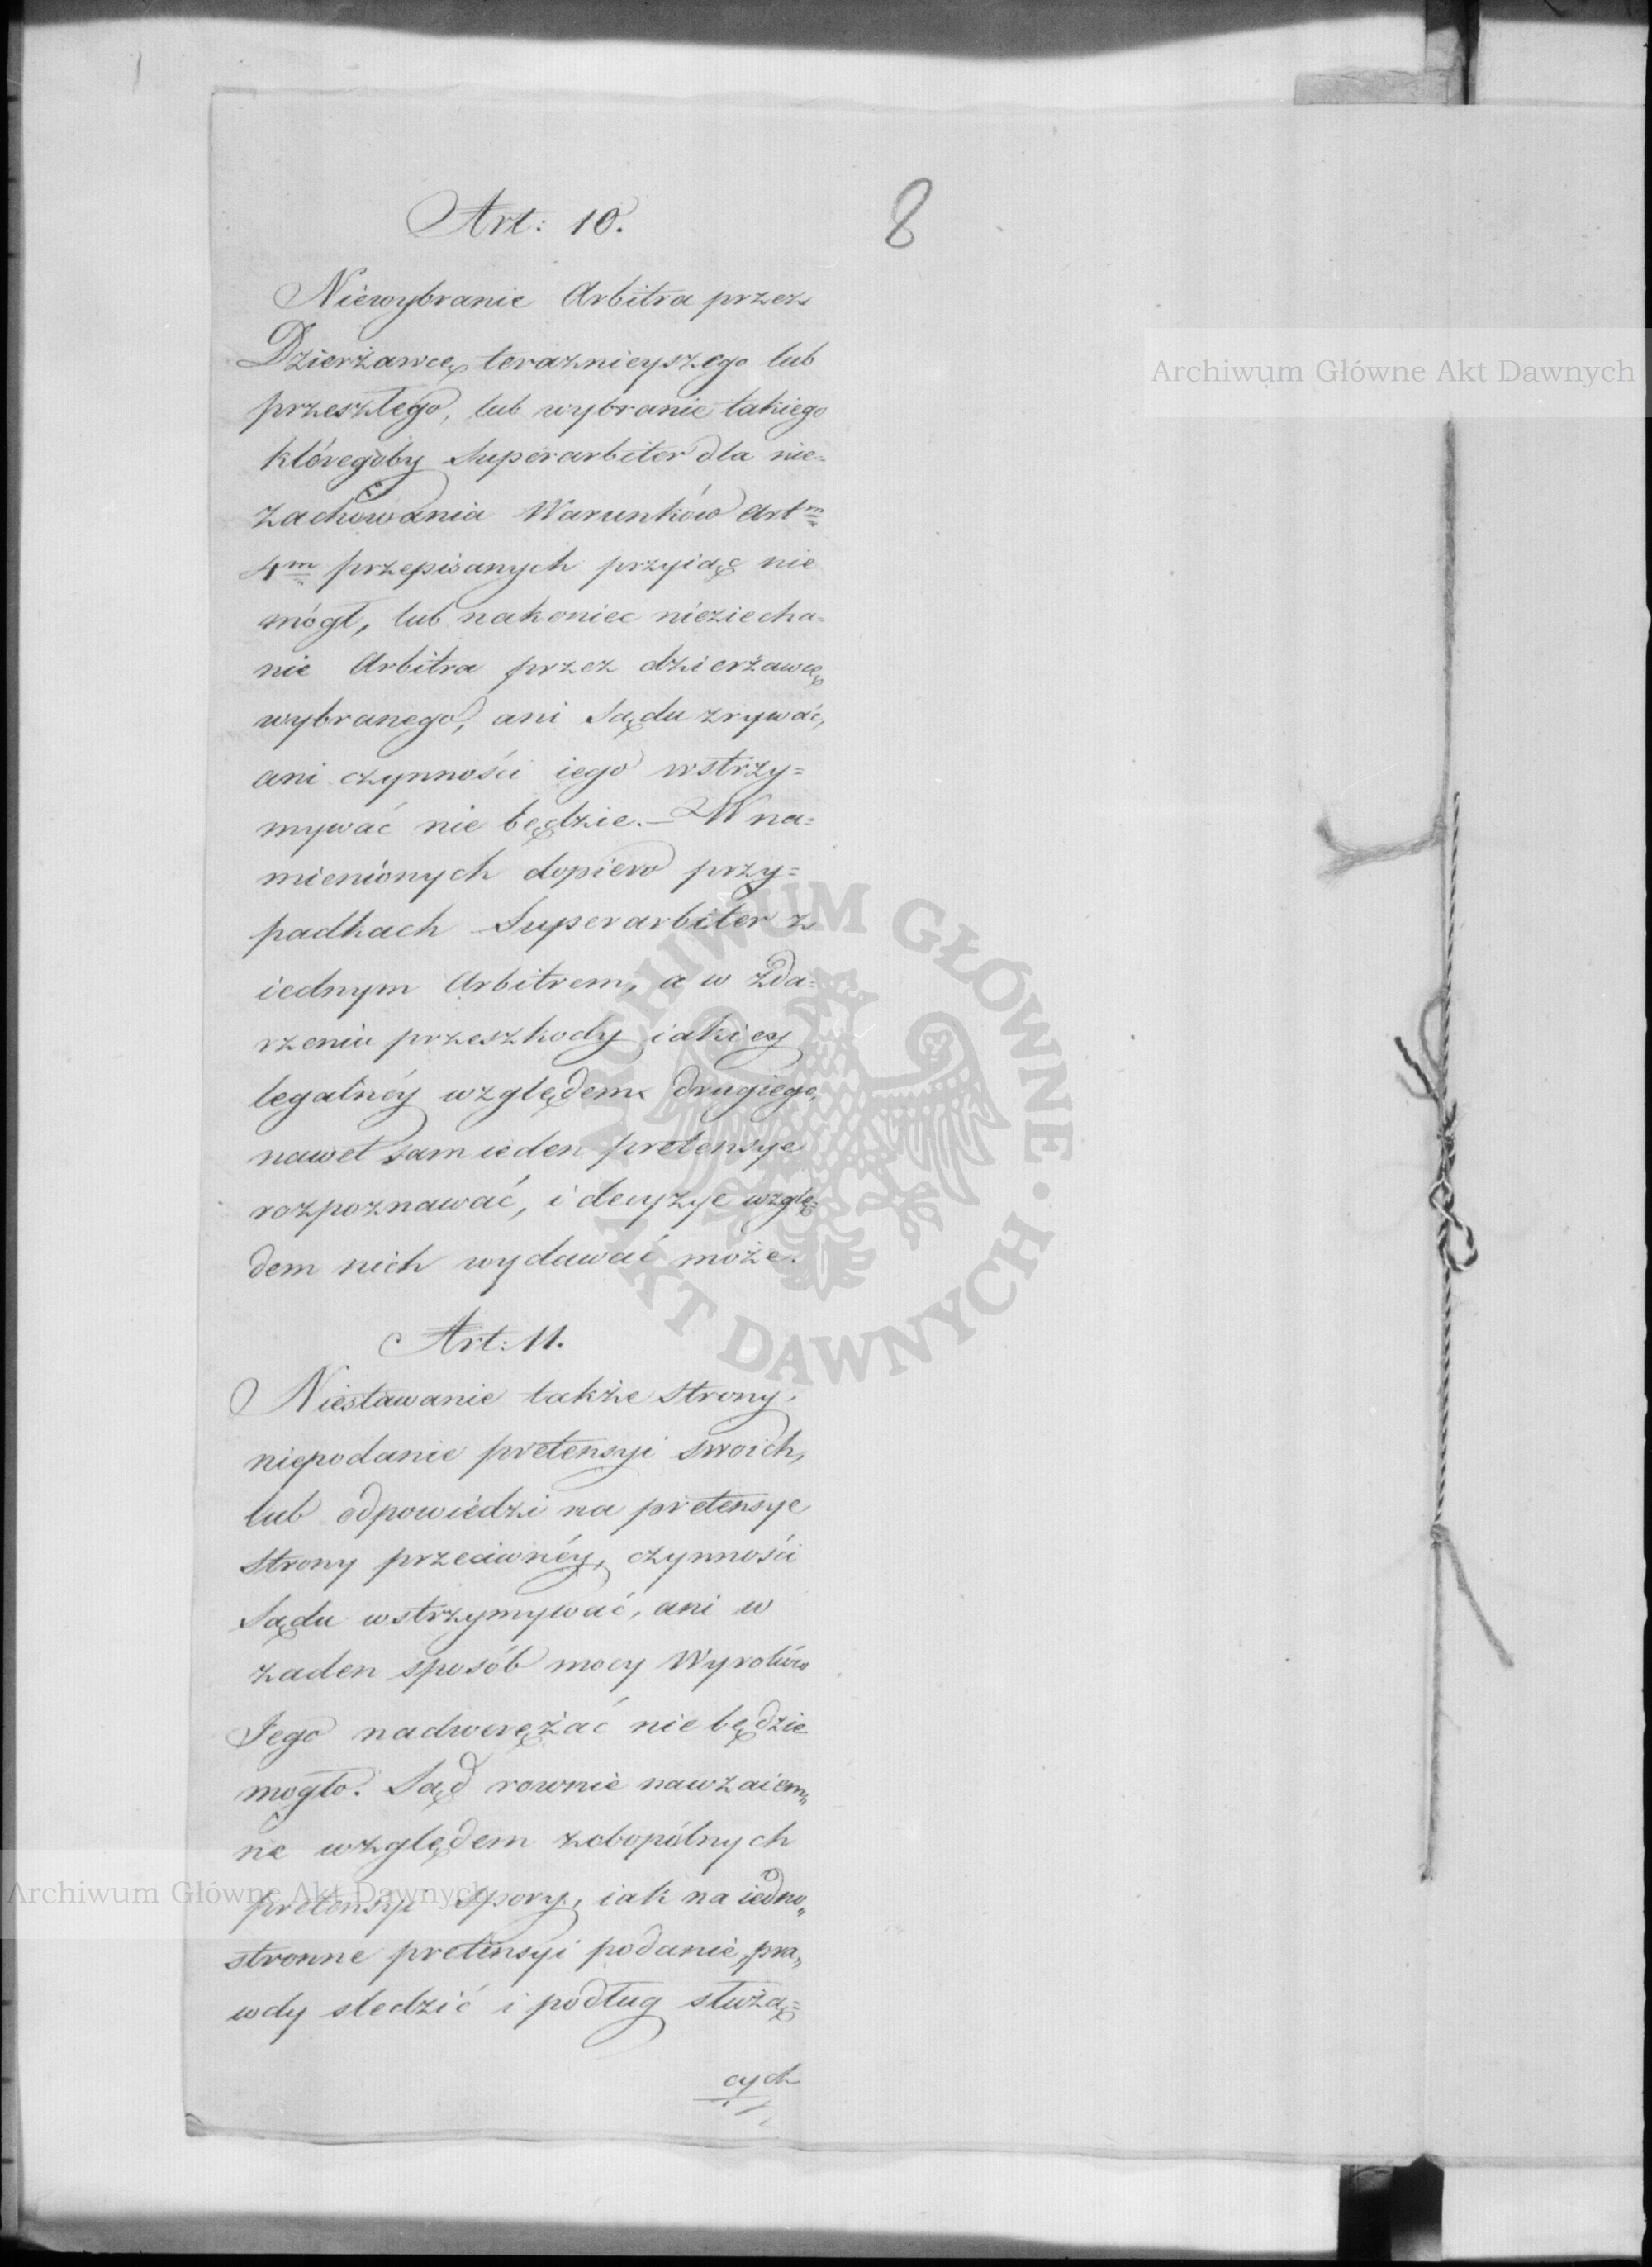 8
Art: 10.
Niewybranie Arbitra przez
Dzierżawcę teraznieyszego lub
przeszłego, lub wybranie takiego
któregoby Superarbiter dla nie=
zachowania Warunków Artm
4m przepisanych przyiąć nie
mógł, lub nakoniec nieziecha=
nie Arbitra przez dzierżawcę
wybranego, ani Sądu zrywać,
ani czynności iego wstrzy=
mywać nie będzie. – W na=
mienionych dopiero przy=
padkach Superarbiter z
iednym Arbitrem, a w zda=
rzeniu przeszkody iakiey
legalnéy względem drugiego,
nawet sam ieden pretensye
rozpoznawać, i decyzye wzglę=
dem nich wydawać może.
Art: 11.
Niestawanie także Strony,
niepodanie pretensyi swoich,
lub odpowiedzi na pretensye
Strony przeciwnéy, czynności
Sądu wstrzymywać, ani w
żaden sposób mocy Wyroków
Jego nadwerężać nie będzie
mogło. Sąd rownie nawzaiem„
ne względem zobopólnych
pretensyi Spory, iak na iedno„
stronne pretensyi podanie, pra„
wdy sledzić i podług służą=
cych
Archiwum Główne Akt Dawnych
ARCHIWUM GŁÓWNE · AKT DAWNYCH
Archiwum Główne Akt Dawnych